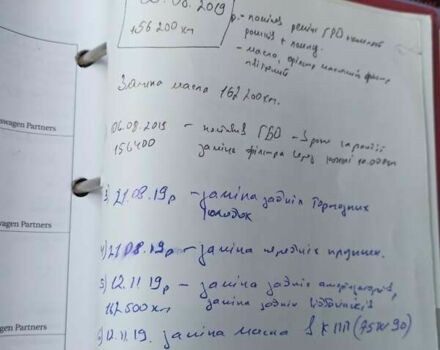 .08.2019
156 200 км
р. - поміняв ремінь ГРМ +
ролики + помпу.
- масло, фільтр масляний, фільтр
повітряний
Заміна масла 162 200 км.
swagen Partners
06.08.2019 - поставив ГБО - 3 роки гарантії
156400 заміна фільтра через кожні 10.000км
3) 21.08.19р - заміна задніх тормозних
колодок
wagen Partners
4) 21.08.19р - заміна передніх пружин.
5) 12.11.19р - заміна задніх амортизаторів,
162500км заміна задніх відбійників
agen Partners
6) 12.11.19. заміна масла в КПП (75W90)